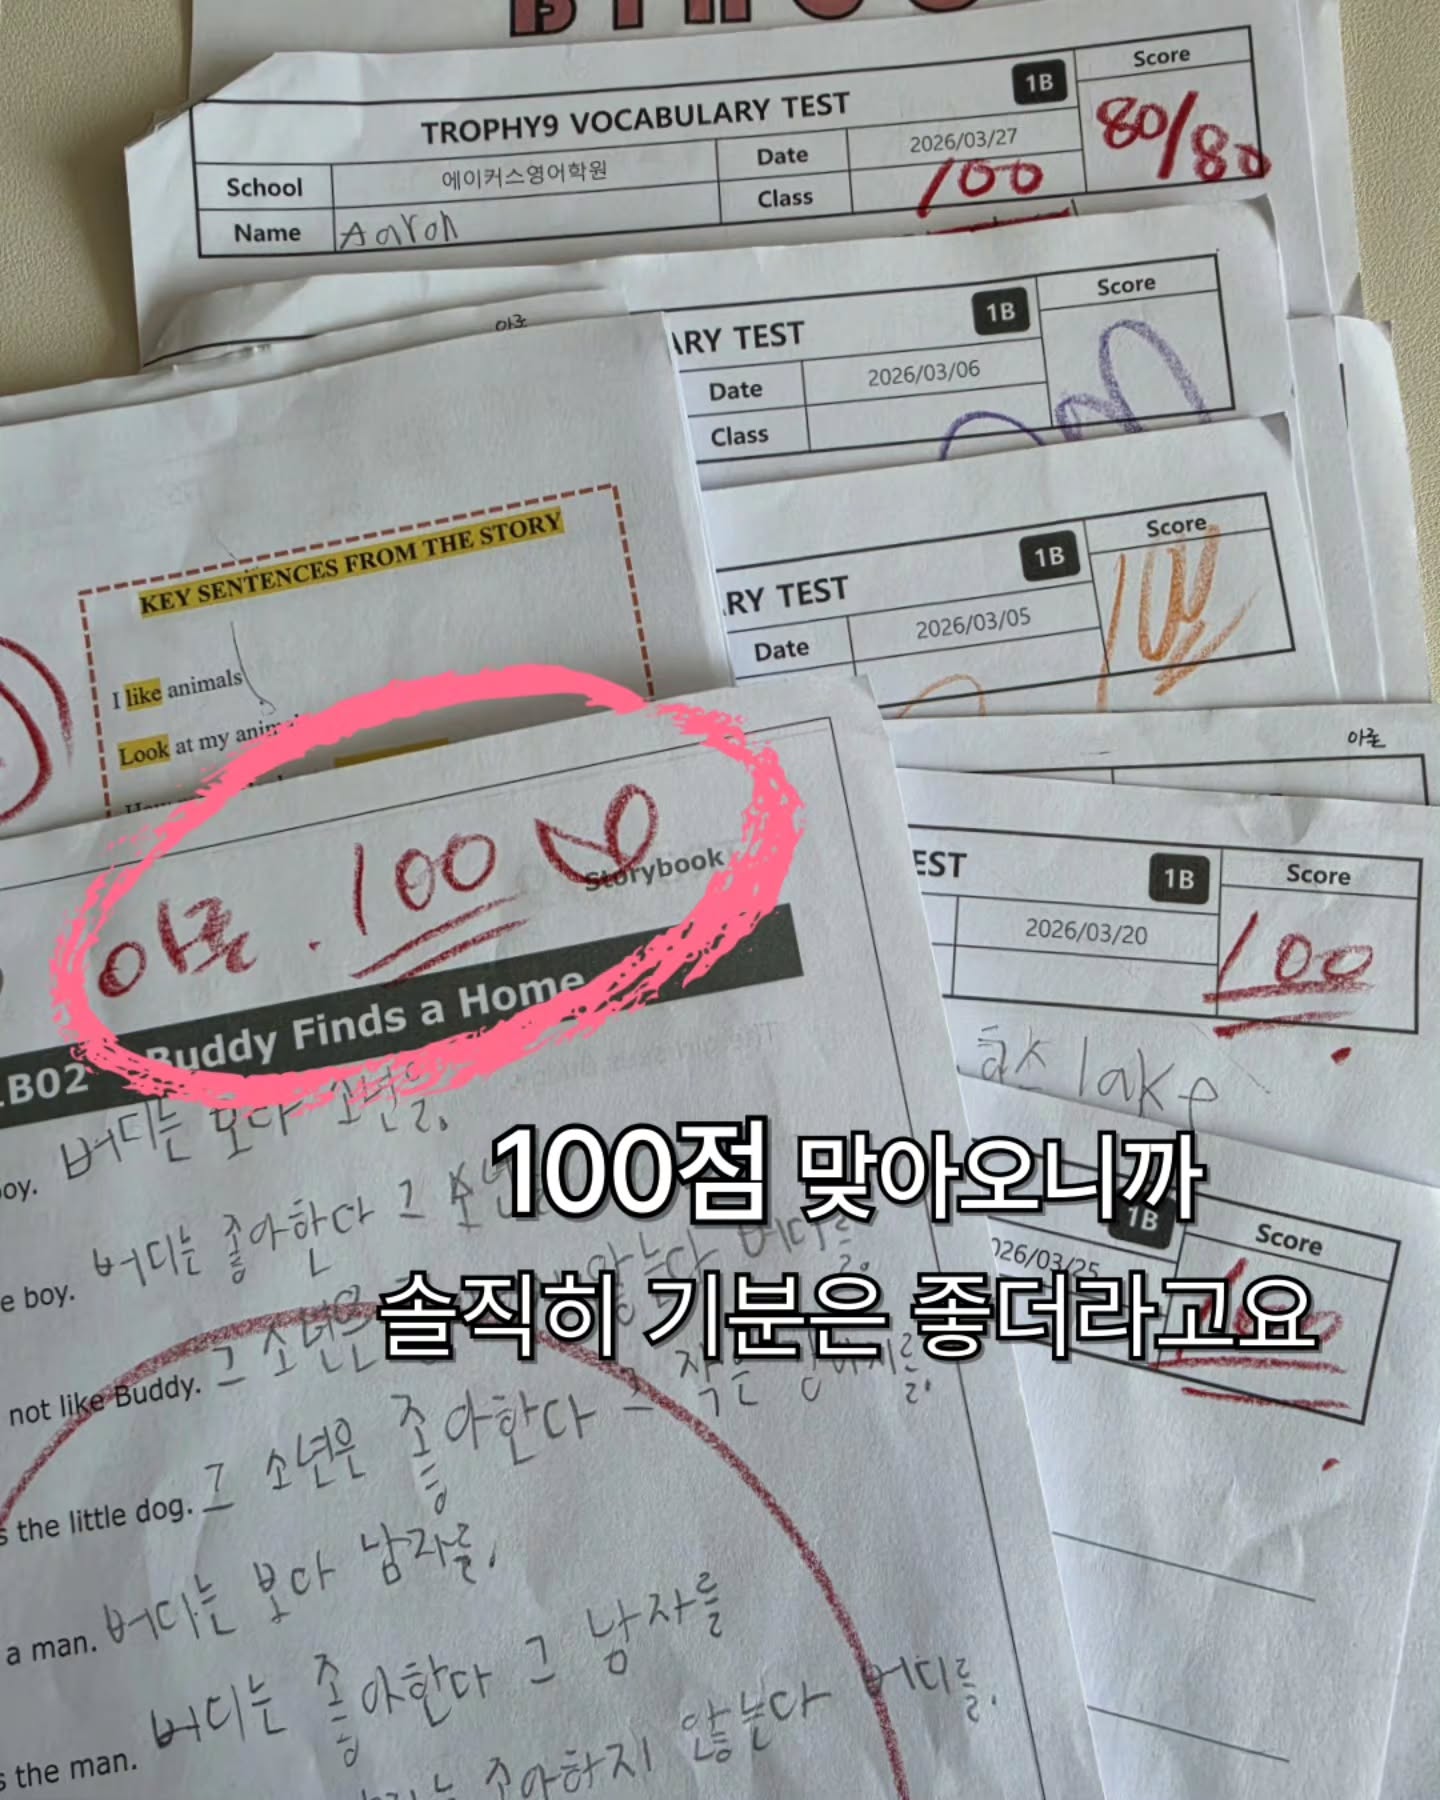 TROPHY9 VOCABULARY TEST 1B Score
School 에이커스영어학원 Date 2026/03/27 80/80
Name Aaron Class 100
아론
ARY TEST 1B Score
Date 2026/03/06
Class
RY TEST 1B Score
Date 2026/03/05 100
KEY SENTENCES FROM THE STORY
I like animals
Look at my
아론
EST 1B Score
2026/03/20 100
호수 lake
아론 . 100
Storybook
B02 Buddy Finds a Home
oy. 버디는 보다 소년을.
e boy. 버디는 좋아한다 그
not like Buddy. 그 소년은 않는다 버디를.
s the little dog. 그 소년은 좋아한다 그 작은 강아지를.
a man. 버디는 보다 남자를.
s the man. 버디는 좋아한다 그 남자를
좋아하지 않는다 버디를.
1B Score
026/03/25 100
100점 맞아오니까
솔직히 기분은 좋더라고요